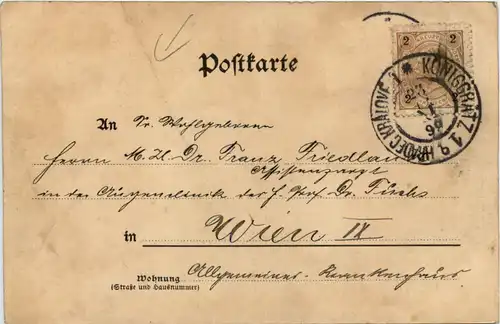 2 2
Postkarte
KÖNIGGRÄTZ 1 * HRADEC KRÁLOVÉ 1 *
99
An Sr. Wohlgeboren
Herrn M. U. Dr. Franz Friedland
Assistenzarzt
in der Augenklinik des H. Prof. Dr. Fuchs
in Wien IX
Wohnung
(Straße und Hausnummer)
Allgemeines Krankenhaus